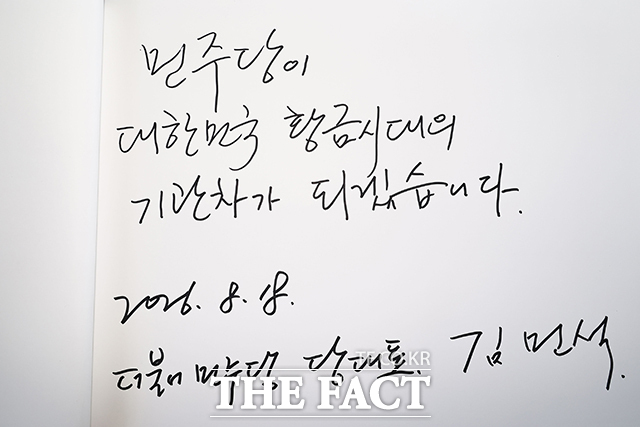 민주당이
대한민국 황금시대의
기관차가 되겠습니다.
2026. 8. 18.
더불어민주당 당대표 김민석.
THE FACT